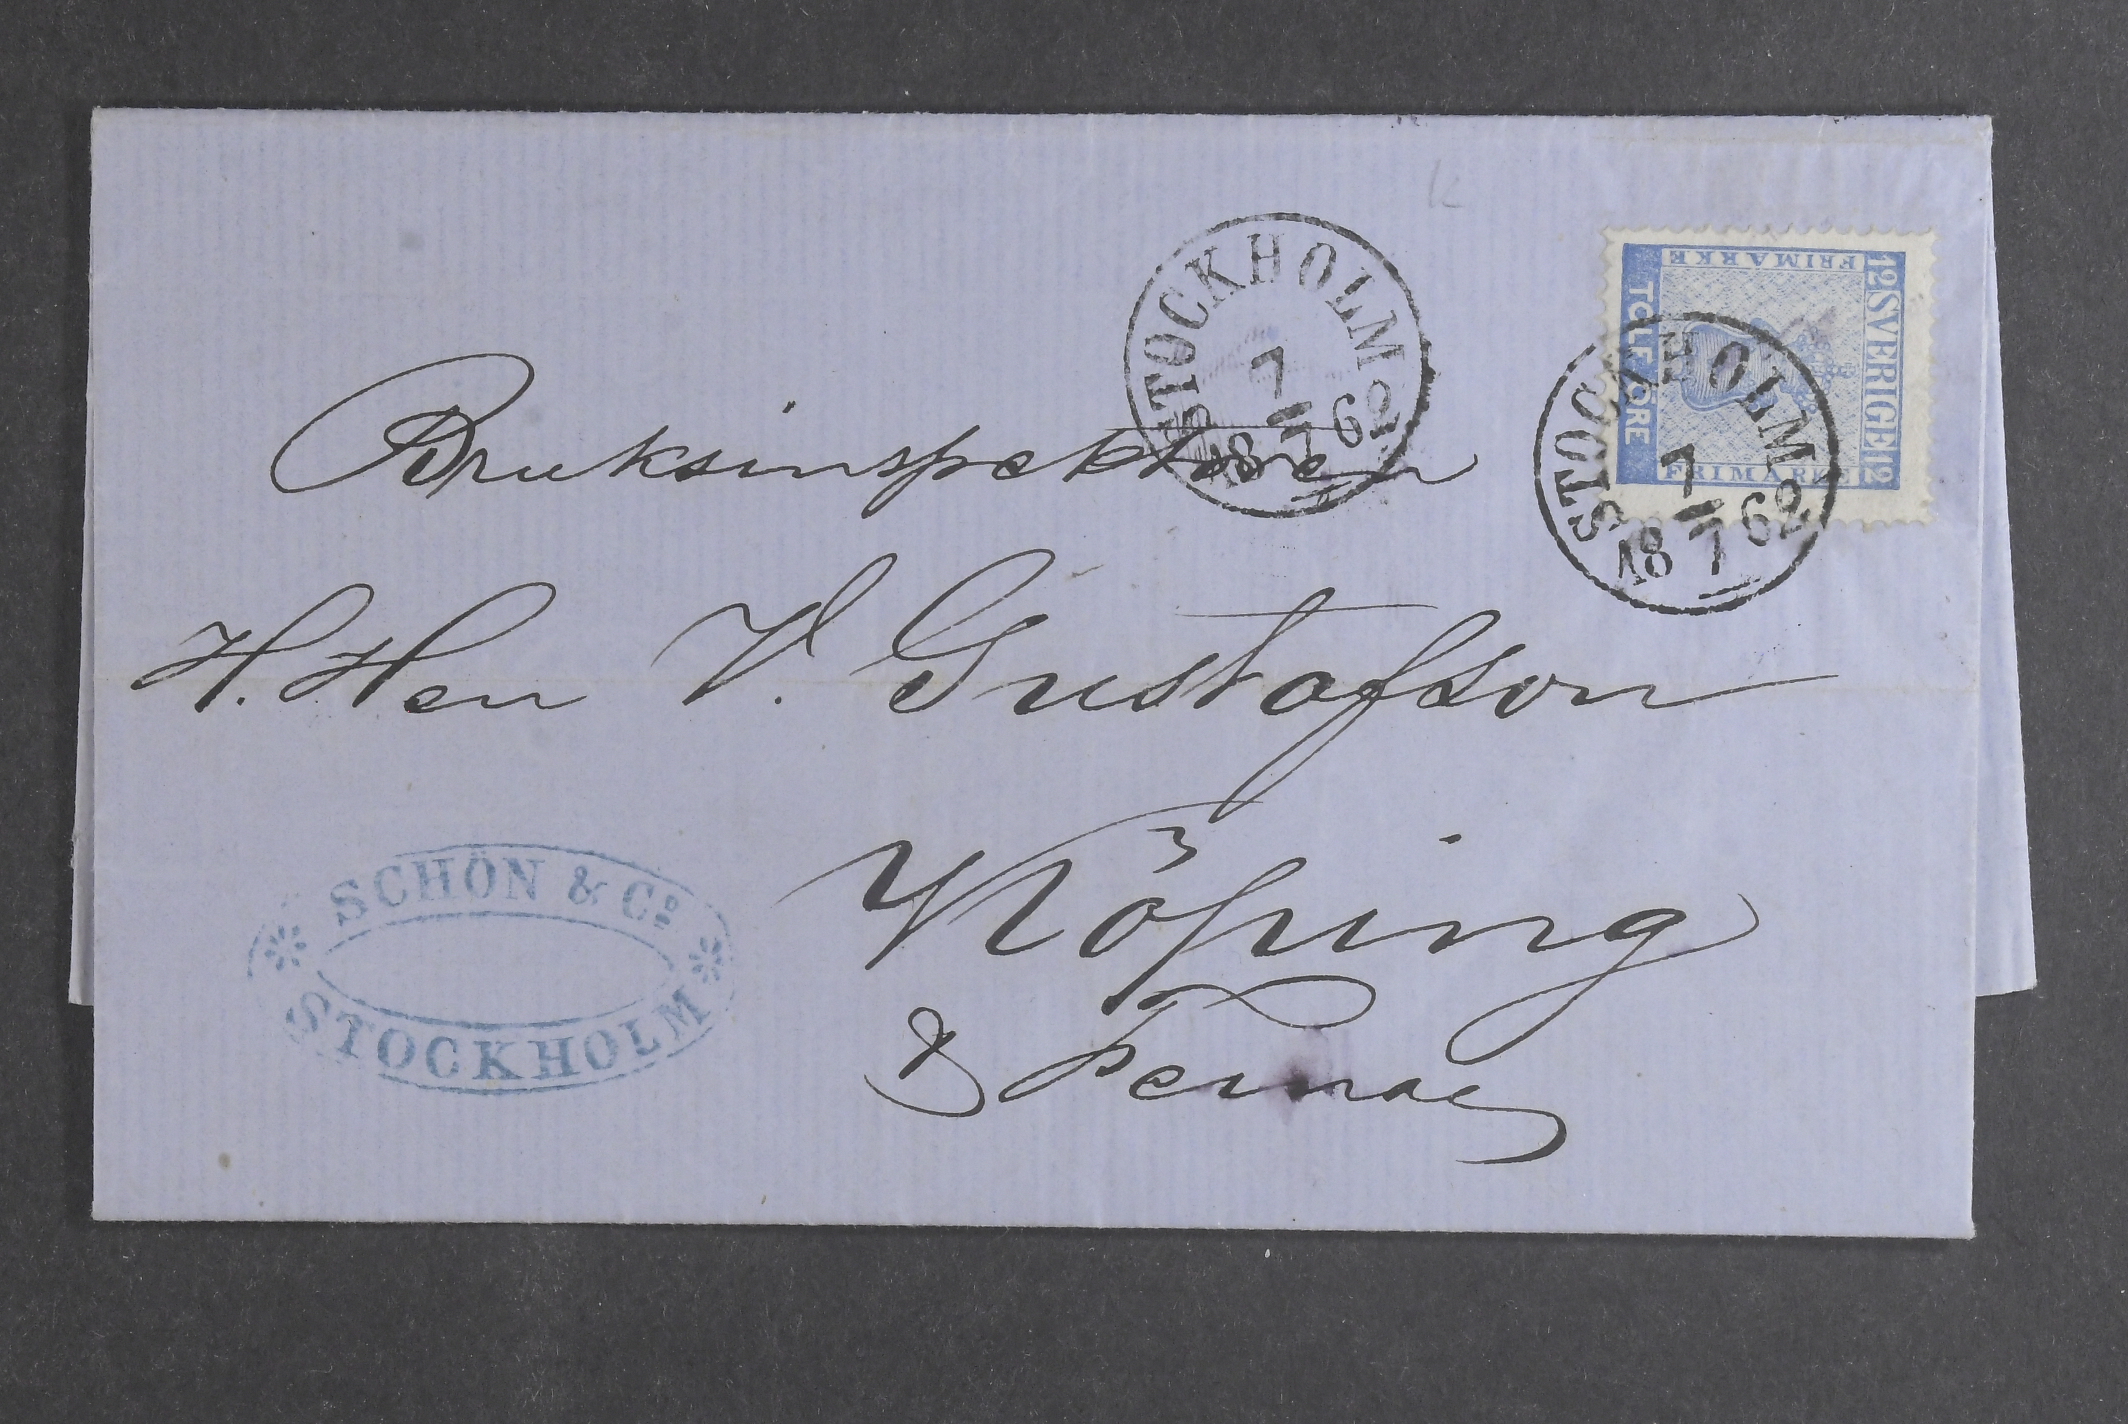 STOCKHOLM
7
18 7 62
12 SVERIGE 12
FRIMÄRKE
TOLF ÖRE
FRIMÄRKE
STOCKHOLM
7
18 7 62
Bruksinspektoren
H. Herr V. Gustafson
Köping
& Fernae
SCHÖN & Co
STOCKHOLM